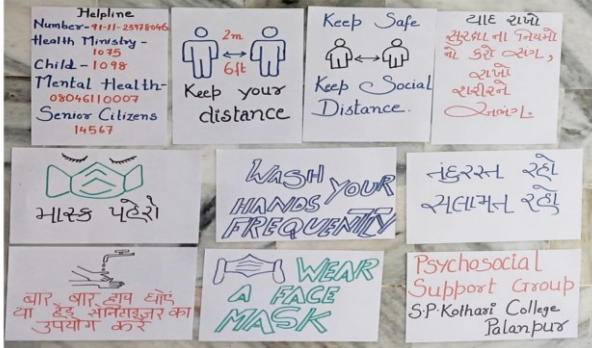 Helpline
Number-91-11-23978046
Health Ministry-
1075
Child - 1098
Mental Health-
08046110007
Senior Citizens
14567
2m
6ft
Keep your
distance
Keep Safe
Keep Social
Distance.
યાદ રાખો
સુરક્ષાના નિયમો
નો કરો સંગ,
રાખો
શરીરને
અભંગ.
માસ્ક પહેરો
WASH YOUR
HANDS
FREQUENTLY
તંદુરસ્ત રહો
સલામત રહો
बार बार हाथ धोएं
या हैंड सेनिटाइजर का
उपयोग करें
WEAR
A FACE
MASK
Psychosocial
Support Group
S.P. Kothari College
Palanpur